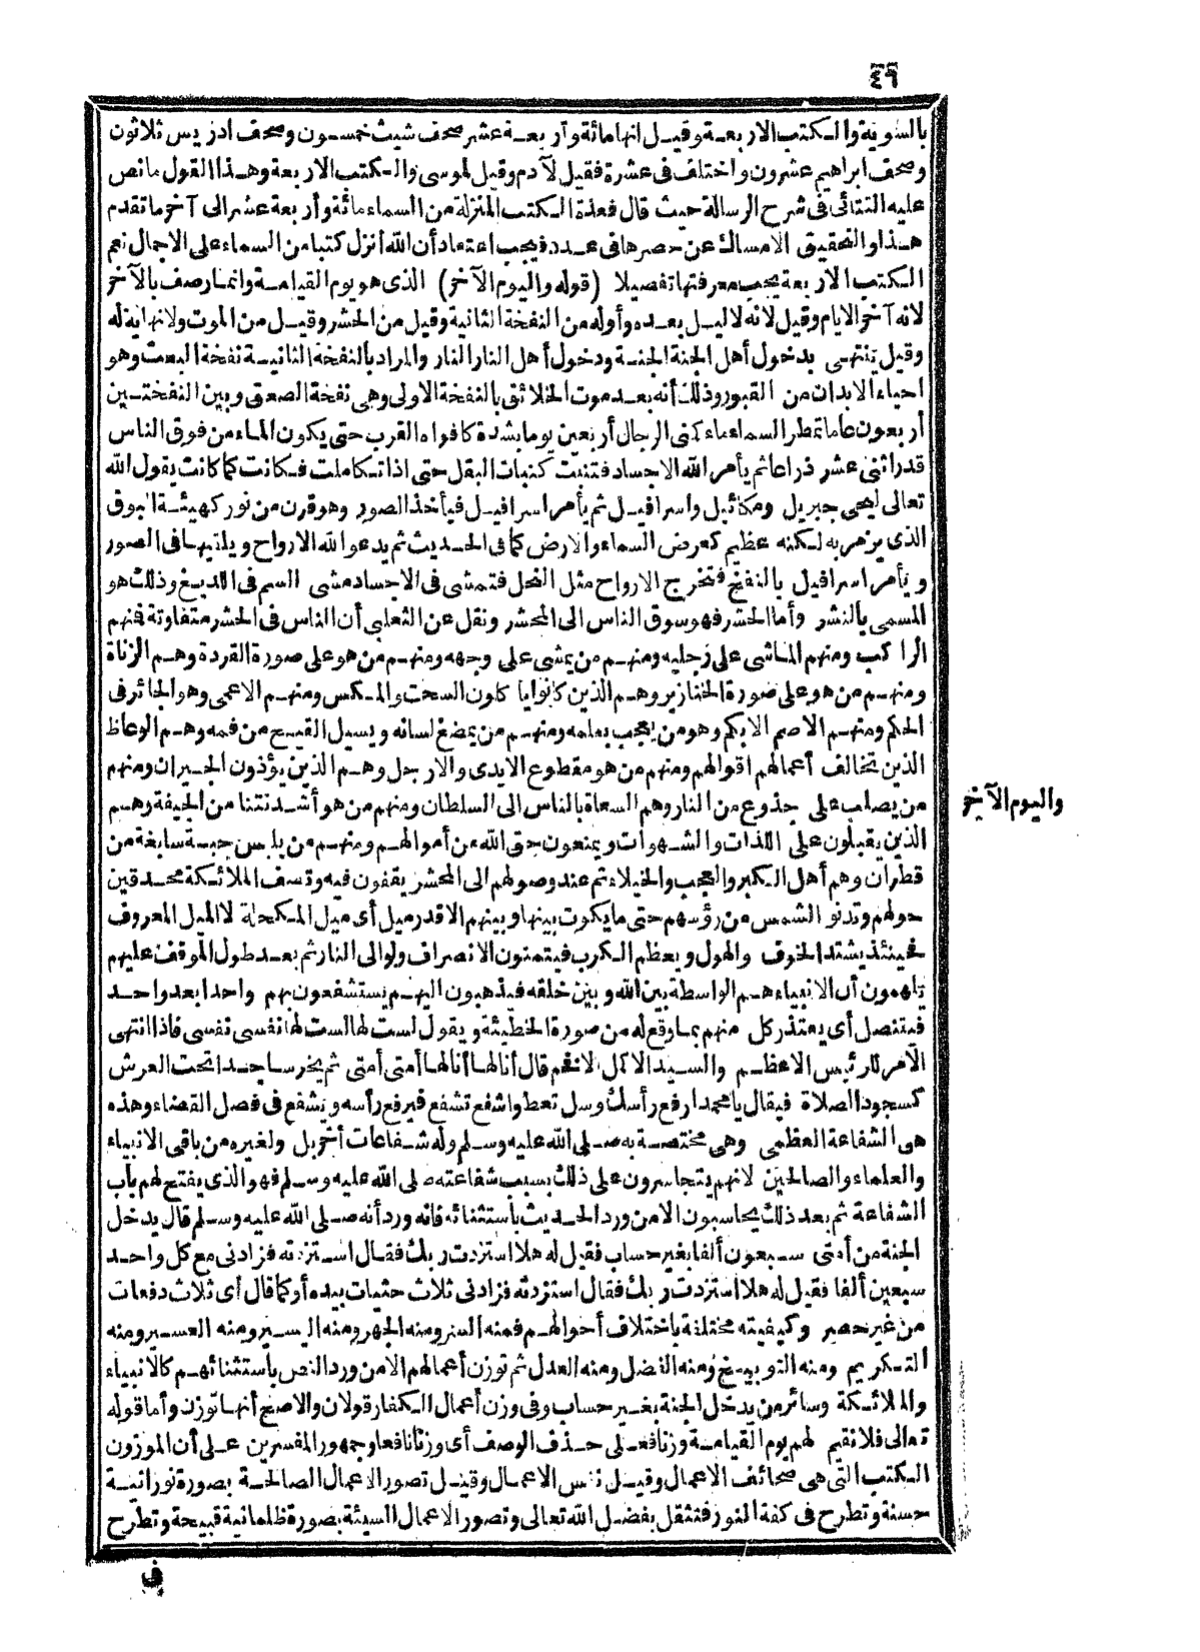 ٤٩
بالسوية والكتب الاربعة وقيل انها مائة وأربعة عشر صحف شيث خمسون وصحف ادريس ثلاثون
وصحف ابراهيم عشرون واختلف فى عشرة فقيل لآدم وقيل لموسى والكتب الاربعة وهذا القول ما نص
عليه التتائى فى شرح الرسالة حيث قال فعدة الكتب المنزلة من السماء مائة وأربعة عشر الى آخر ما تقدم
هذا والتحقيق الامساك عن حصرها فى عدد فيجب اعتقاد أن الله أنزل كتبا من السماء على الاجمال نعم
الكتب الاربعة يجب معرفتها تفصيلا (قوله واليوم الآخر) الذى هو يوم القيامة وانما وصف بالآخر
لانه آخر الايام وقيل لانه لا ليل بعده وأوله من النفخة الثانية وقيل من الحشر وقيل من الموت ولا نهاية له
وقيل ينتهى بدخول أهل الجنة الجنة ودخول أهل النار النار والمراد بالنفخة الثانية نفخة البعث وهو
احياء الابدان من القبور وذلك أنه بعد موت الخلائق بالنفخة الاولى وهى نفخة الصعق وبين النفختين
أربعون عاما تمطر السماء ماء كمنى الرجال أربعين يوما بشدة كأفواه القرب حتى يكون الماء من فوق الناس
قدر اثنى عشر ذراعا ثم يأمر الله الاجساد فتنبت كنبات البقل حتى اذا تكاملت فكانت كما كانت يقول الله
تعالى ليحى جبريل ومكائيل واسرافيل ثم يأمر اسرافيل فيأخذ الصور وهو قرن من نور كهيئة البوق
الذى يزمر به لكنه عظيم كعرض السماء والارض كما فى الحديث ثم يدعو الله الارواح ويلقيها فى الصور
ويأمر اسرافيل بالنفخ فتخرج الارواح مثل النحل فتمشى فى الاجساد مشى السم فى اللديغ وذلك هو
المسمى بالنشر وأما الحشر فهو سوق الناس الى المحشر ونقل عن الثعلبى أن الناس فى الحشر متفاوتة فمنهم
الراكب ومنهم الماشى على رجليه ومنهم من يمشى على وجهه ومنهم من هو على صورة القردة وهم الزناة
ومنهم من هو على صورة الخنازير وهم الذين كانوا يأكلون السحت والمكس ومنهم الاعمى وهو الجائر فى
الحكم ومنهم الاصم الابكم وهو من يعجب بعلمه ومنهم من يمضغ لسانه ويسيل القيح من فمه وهم الوعاظ
الذين تخالف أعمالهم اقوالهم ومنهم من هو مقطوع الايدى والارجل وهم الذين يؤذون الجيران ومنهم
من يصلب على جذوع من النار وهم السعاة بالناس الى السلطان ومنهم من هو أشد نتنا من الجيفة وهم
واليوم الآخر
الذين يقبلون على اللذات والشهوات ويمنعون حق الله من أموالهم ومنهم من يلبس جبة سابغة من
قطران وهم أهل الكبر والعجب والخيلاء ثم عند وصولهم الى المحشر يقفون فيه وتصف الملائكة محدقين
حولهم وتدنو الشمس من رؤسهم حتى ما يكون بينها وبينهم الا قدر ميل أى ميل المكحلة لا الميل المعروف
فحينئذ يشتد الخوف والهول ويعظم الكرب فيتمنون الانصراف ولو الى النار ثم بعد طول الموقف عليهم
يلهمون أن الانبياء هم الواسطة بين الله وبين خلقه فيذهبون اليهم يستشفعون بهم واحدا بعد واحد
فيتنصل أى يعتذر كل منهم بما وقع له من صورة الخطيئة ويقول لست لها لست لها نفسى نفسى فاذا انتهى
الامر للرئيس الاعظم والسيد الاكمل الافخم قال أنا لها أنا لها أمتى أمتى ثم يخر ساجدا تحت العرش
كسجود الصلاة فيقال يا محمد ارفع رأسك وسل تعط واشفع تشفع فيرفع رأسه ويشفع فى فصل القضاء وهذه
هى الشفاعة العظمى وهى مختصة به صلى الله عليه وسلم وله شفاعات أخر بل ولغيره من باقى الانبياء
والعلماء والصالحين لانهم يتجاسرون على ذلك بسبب شفاعته صلى الله عليه وسلم فهو الذى يفتح لهم باب
الشفاعة ثم بعد ذلك يحاسبون الا من ورد الحديث باستثنائه فانه ورد أنه صلى الله عليه وسلم قال يدخل
الجنة من أمتى سبعون ألفا بغير حساب فقيل له هلا استزدت ربك فقال استزدته فزادنى مع كل واحد
سبعين ألفا فقيل له هلا استزدت ربك فقال استزدته فزادنى ثلاث حثيات بيده أو كما قال أى ثلاث دفعات
من غير حصر وكيفيته مختلفة باختلاف أحوالهم فمنه السر ومنه الجهر ومنه اليسير ومنه العسير ومنه
التكريم ومنه التوبيخ ومنه الفضل ومنه العدل ثم توزن أعمالهم الا من ورد النص باستثنائهم كالانبياء
والملائكة وسائر من يدخل الجنة بغير حساب وفى وزن أعمال الكفار قولان والاصح أنها توزن وأما قوله
تعالى فلا نقيم لهم يوم القيامة وزنا فعلى حذف الوصف أى وزنا نافعا وجمهور المفسرين على أن الموزون
الكتب التى هى صحائف الاعمال وقيل نفس الاعمال وقيل تصور الاعمال الصالحة بصورة نورانية
حسنة وتطرح فى كفة النور فتثقل بفضل الله تعالى وتصور الاعمال السيئة بصورة ظلمانية قبيحة وتطرح
فى